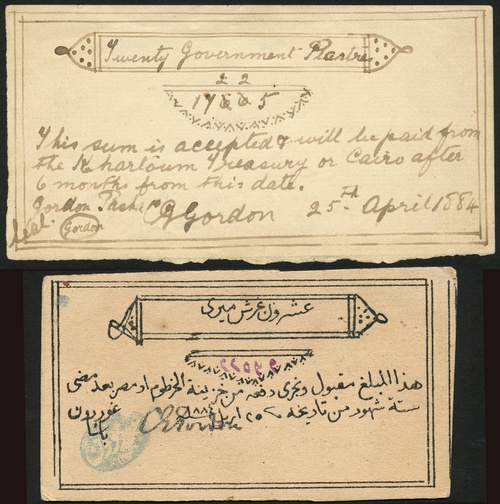 Twenty Government Piastres
22
17885
This sum is accepted & will be paid from
the Khartoum Treasury or Cairo after
6 months from this date.
Gordon Pasha C G Gordon 25th April 1884
Seal. Gordon
عشرون غرش ميرى
هذا المبلغ مقبول وتجرى دفعه من خزينة الخرطوم او مصر بعد مضى
ستة شهور من تاريخه ٢٥ ابريل ١٨٨٤ غوردون
باشا
C G Gordon